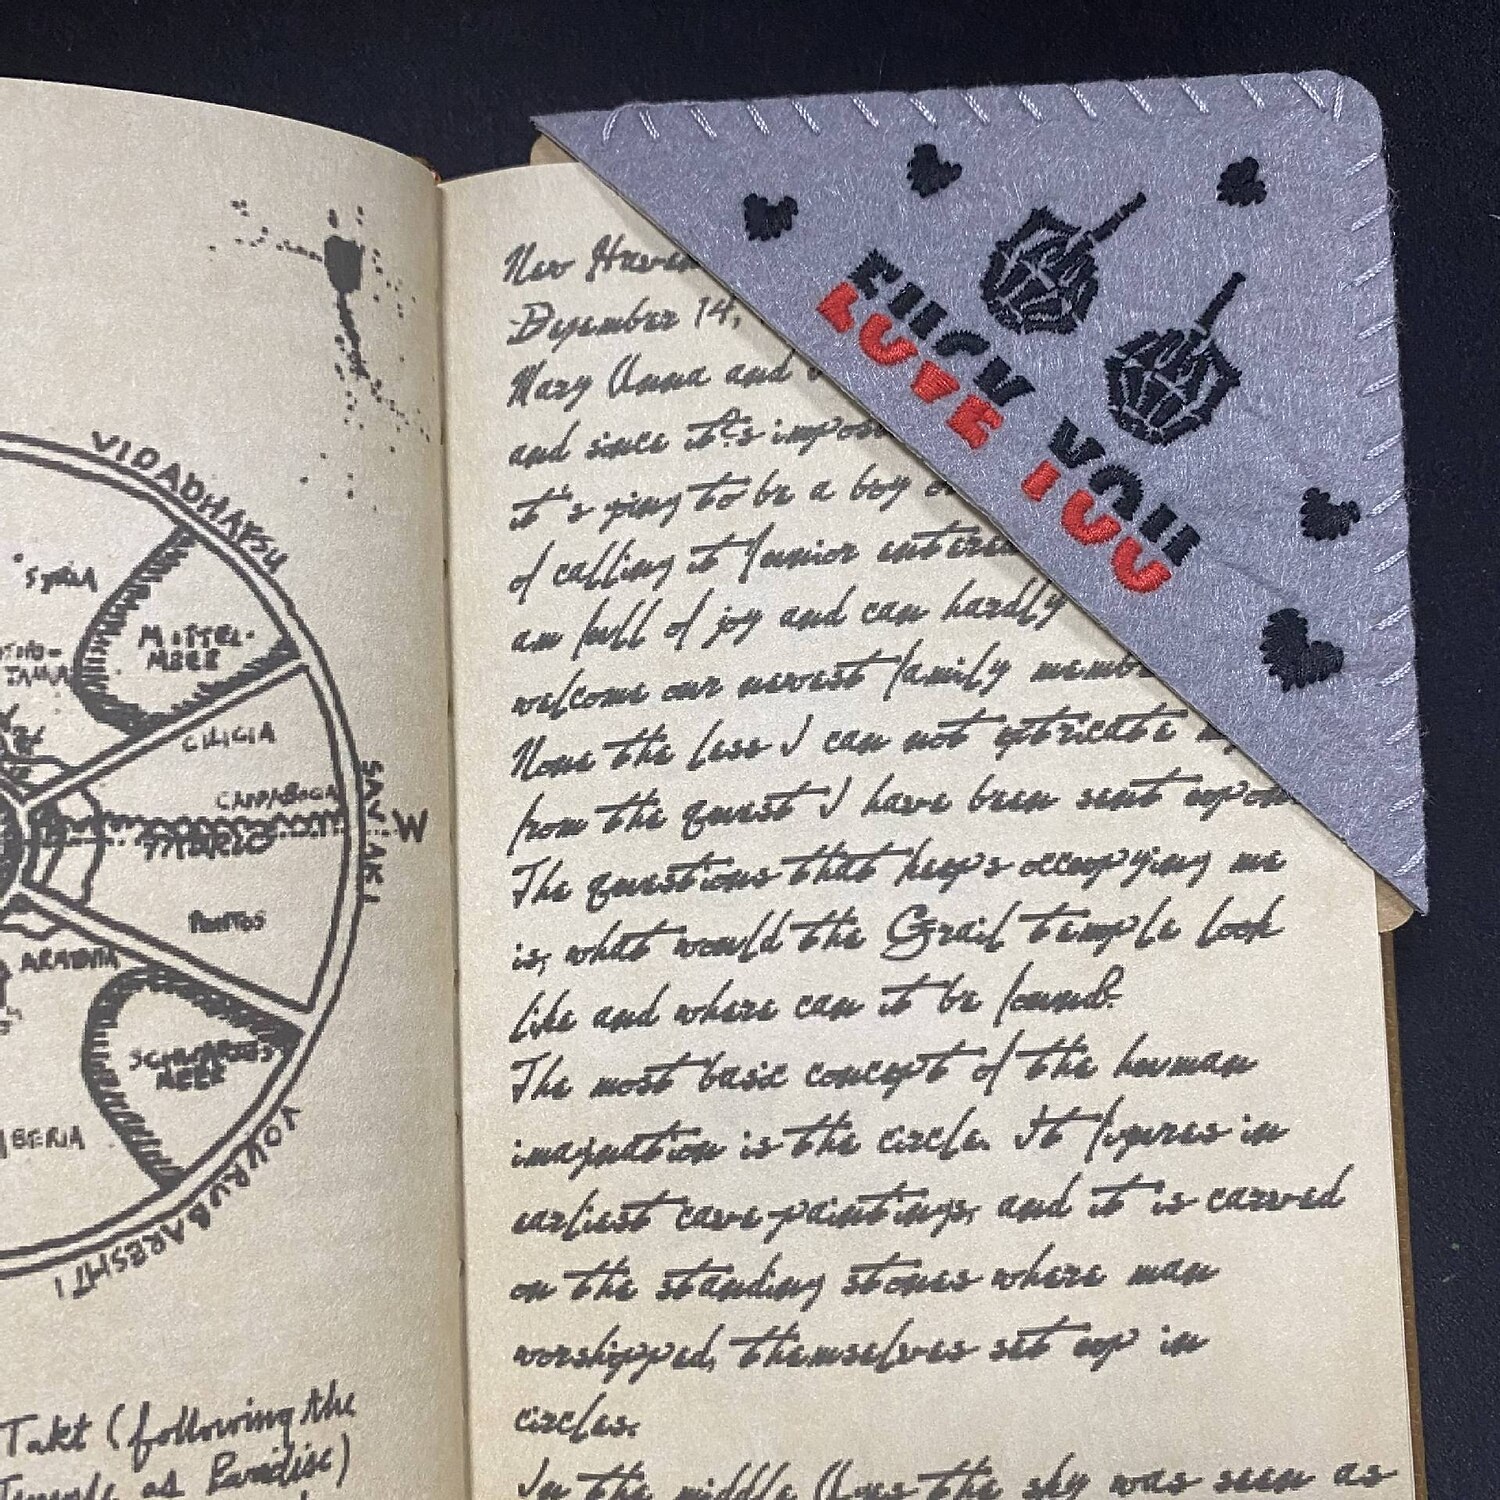 VIDADHAFSU
SYRIA
MITTEL-
MEER
CILICIA
SAVAKI
W
PONTOS
ARMENIA
SCHWARZES
MEER
IBERIA
VOURUBARESHTI
Takt (following the
Temple as Paradise)
New Haven
Dezember 14,
Mary Anna and
and since it's
it's going to be a boy
of calling it Junior
am full of joy and can hardly
welcome our newest family
None the less I can not
from the quest I have been sent upon
The questions that keeps occupying me
is, what would the Grail temple look
like and where can it be found?
The most basic concept of the human
imagination is the circle. It figures in
earliest cave-paintings, and it is carved
on the standing stones where man
worshipped, themselves set up in
circles.
In the middle Ages the sky was seen as
FUCK YOU
LOVE YOU